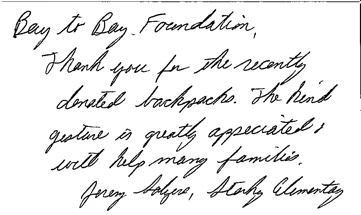 Bay to Bay Foundation,
Thank you for the recently
donated backpacks. The kind
gesture is greatly appreciated &
will help many families.
Elementary